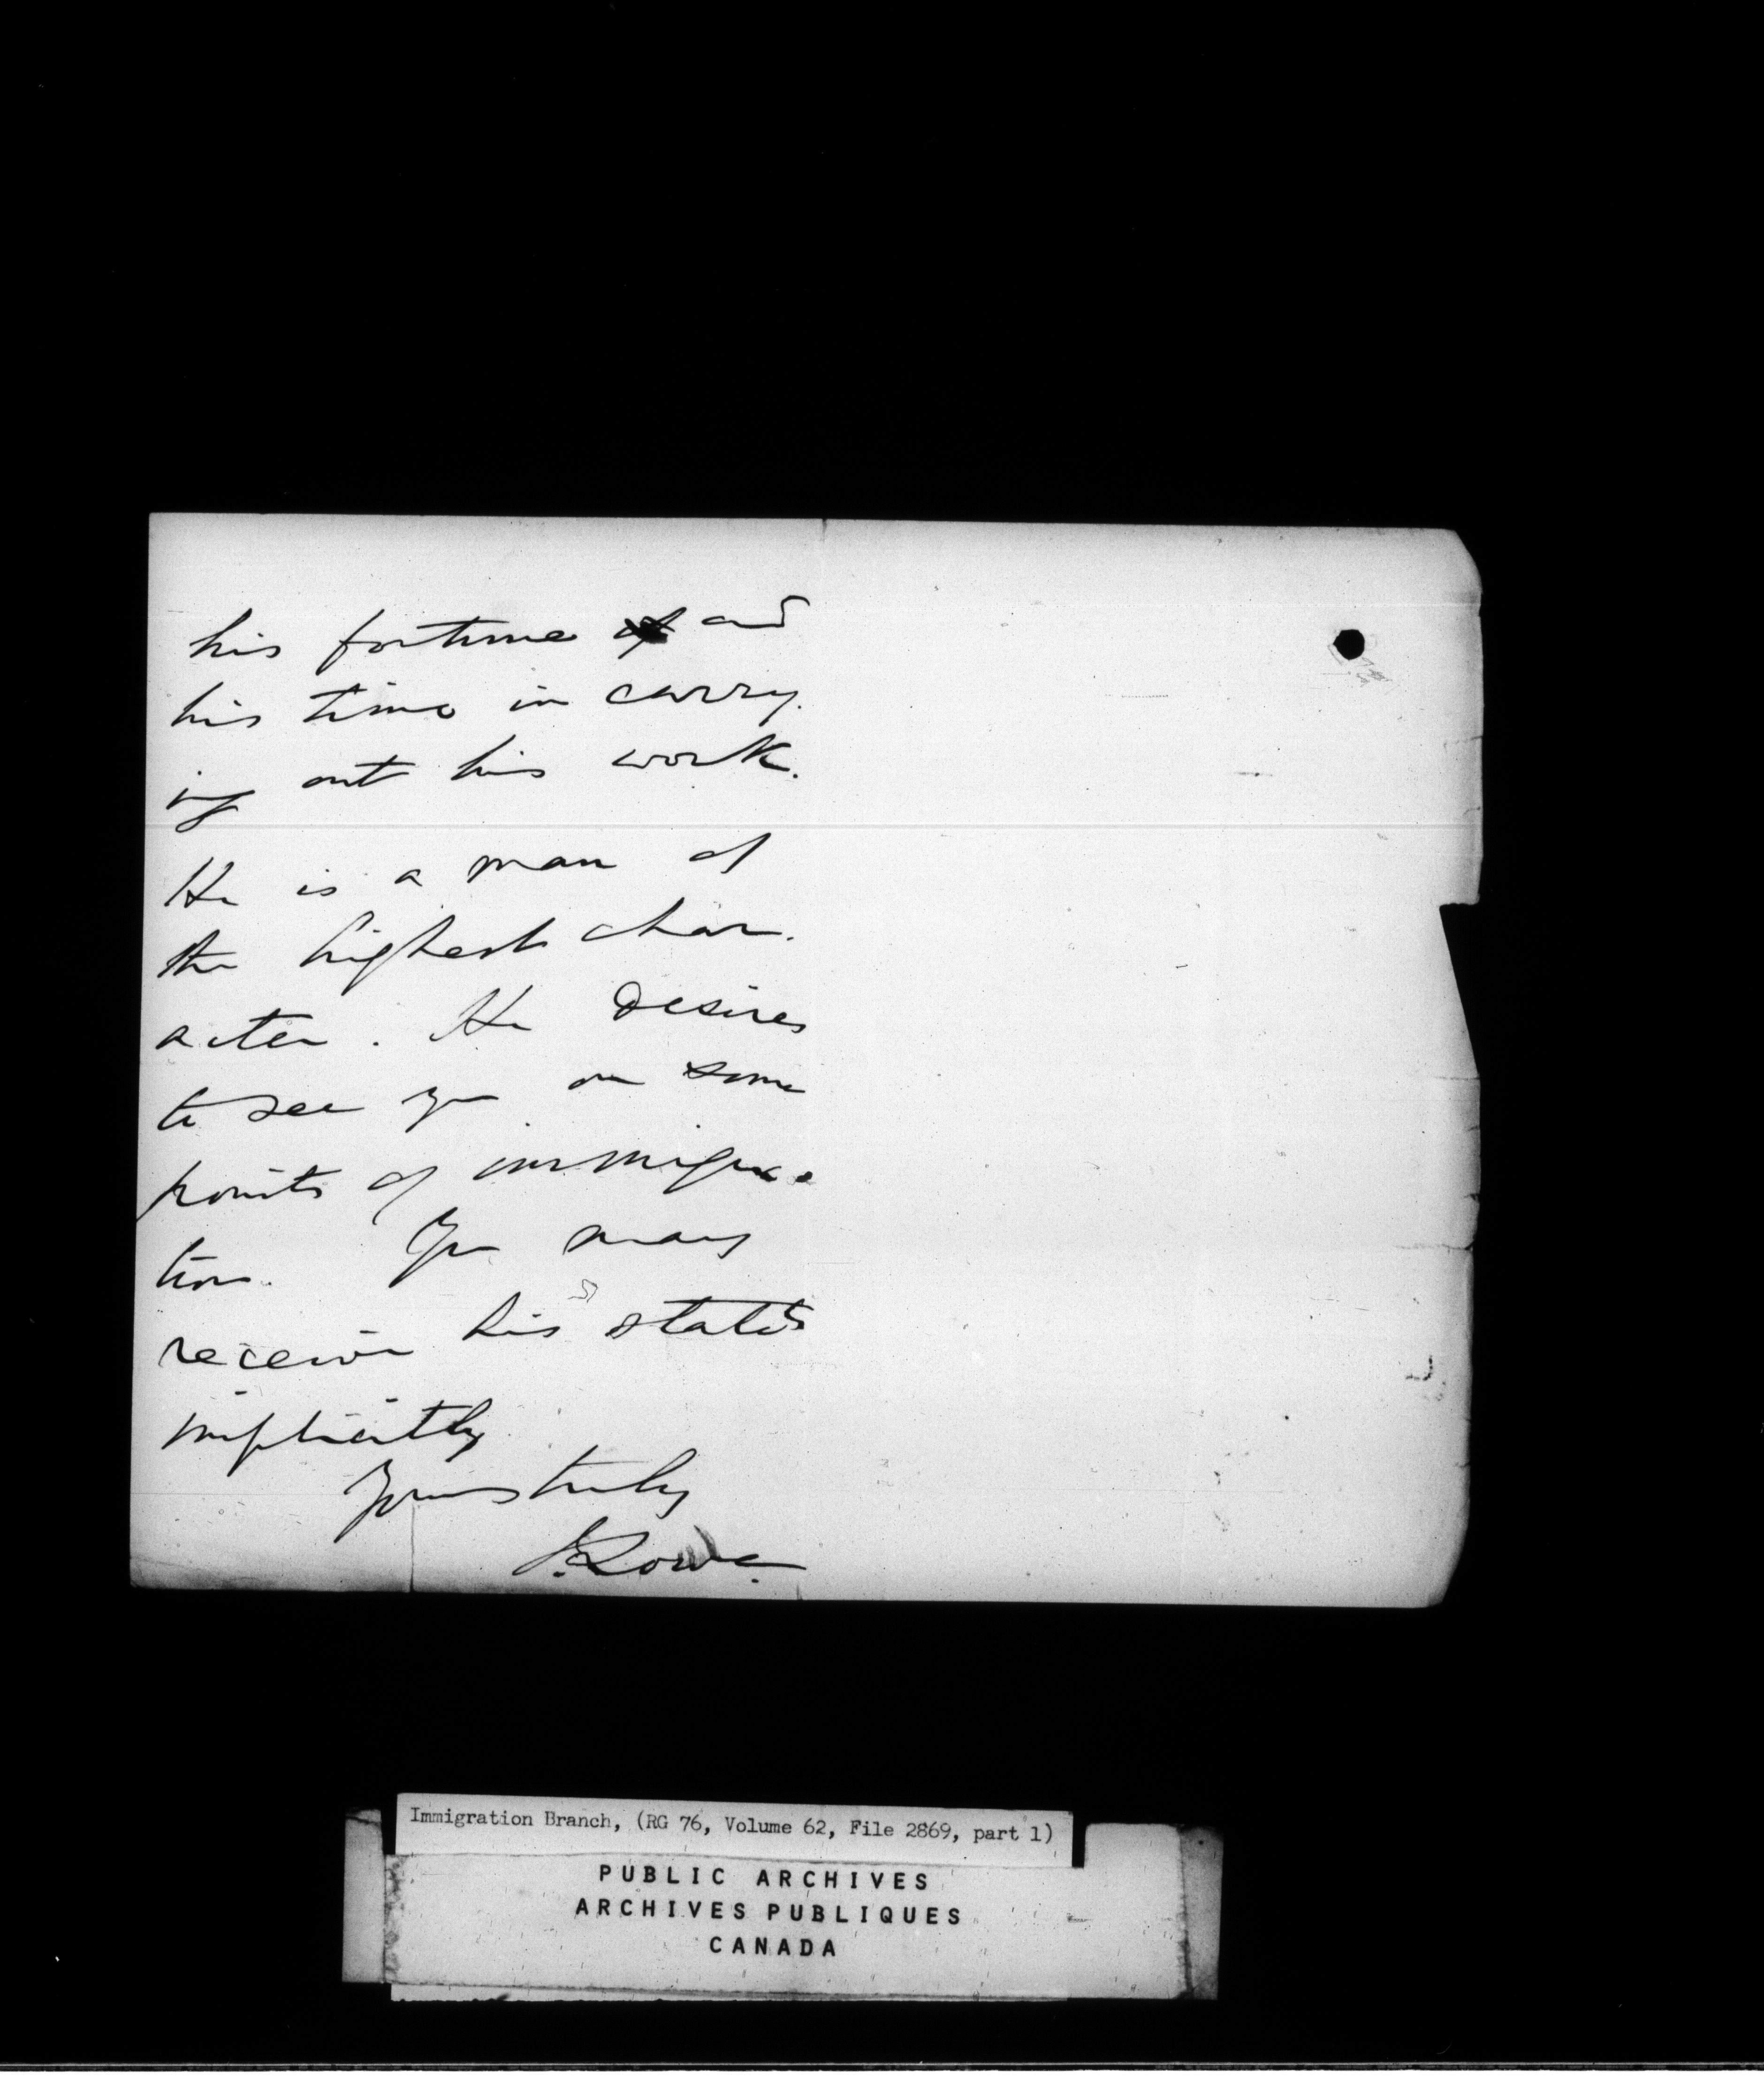 his fortune and
his time in carry.
ing out his work.
He is a man of
the highest char.
acter. He desires
to see you on some
points of immigra.
tion. You may
receive his statets
implicitly
Yours truly
J. Lowe.
Immigration Branch, (RG 76, Volume 62, File 2869, part 1)
PUBLIC ARCHIVES
ARCHIVES PUBLIQUES
CANADA